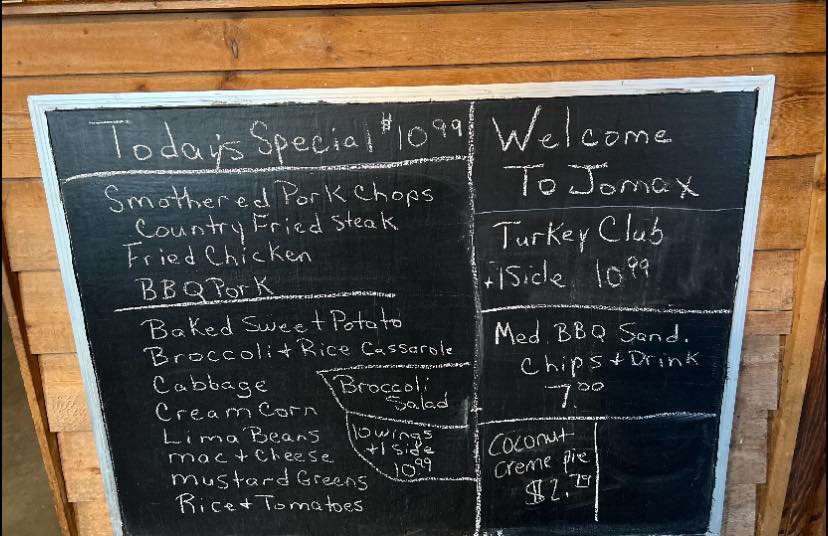 Today's Special $10 99
Smothered Pork Chops
Country Fried Steak
Fried Chicken
BBQ Pork
Baked Sweet Potato
Broccoli + Rice Cassarole
Cabbage
Cream Corn
Lima Beans
mac + Cheese
mustard Greens
Rice + Tomatoes
Broccoli
Salad
10 wings
+1 side
10 99
Welcome
To Jomax
Turkey Club
+1 Side 10 99
Med. BBQ Sand.
Chips + Drink
7.00
Coconut
Creme pie
$2.79